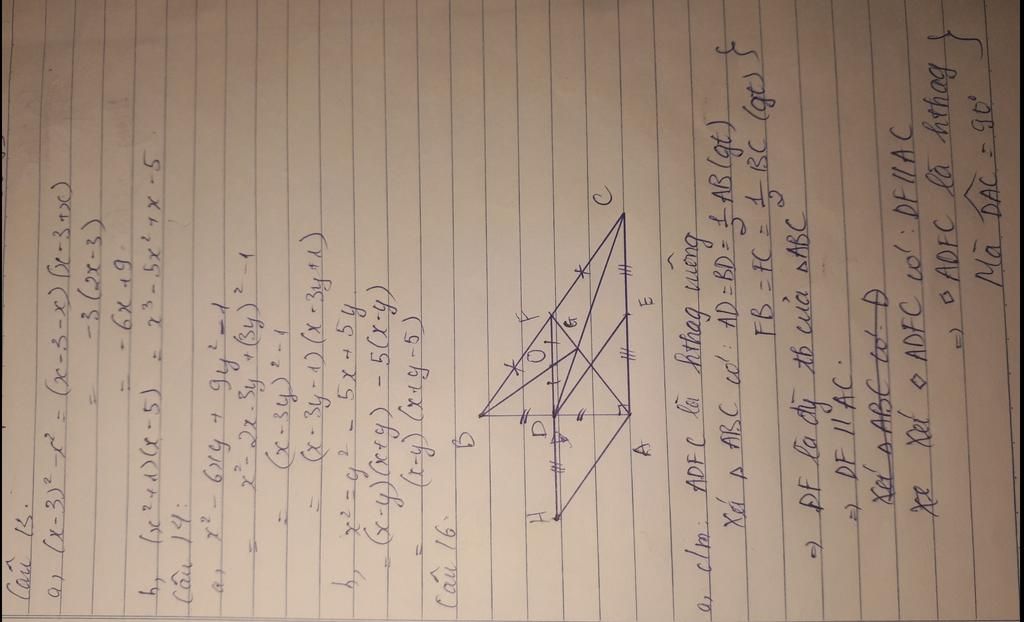 Câu 13.
a, (x-3)² - x² = (x-3-x)(x-3+x)
= -3(2x-3)
= -6x+9
b, (x²+1)(x-5) = x³-5x²+x-5
Câu 14.
a, x² - 6xy + 9y² - 1
= x² - 2x.3y + (3y)² - 1
= (x-3y)² - 1
= (x-3y-1)(x-3y+1)
b, x² - y² - 5x + 5y
= (x-y)(x+y) - 5(x-y)
= (x-y)(x+y-5)
Câu 16:
B
F
C
O
G
H
D
E
A
a, c/m: ADFC là hthag vuông
Xét △ ABC có: AD=BD=½AB(gt)
FB=FC=½BC(gt)}
⇒ DF là đg tb của △ABC
⇒ DF // AC.
Xét △ABC có: D
Xe Xét ◇ ADFC có: DF//AC
⇒ ◇ ADFC là hthag
Mà DAC = 90° }